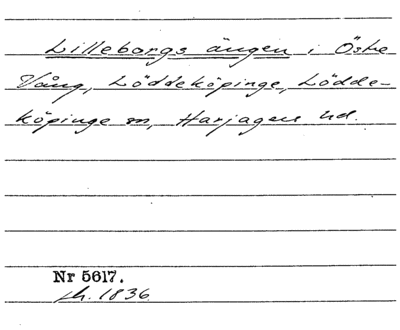 Lilleborgs ängen i Östre
Vång, Löddeköpinge, Lödde-
köpinge sn, Harjagers hd.
Nr 5617.
sk. 1836